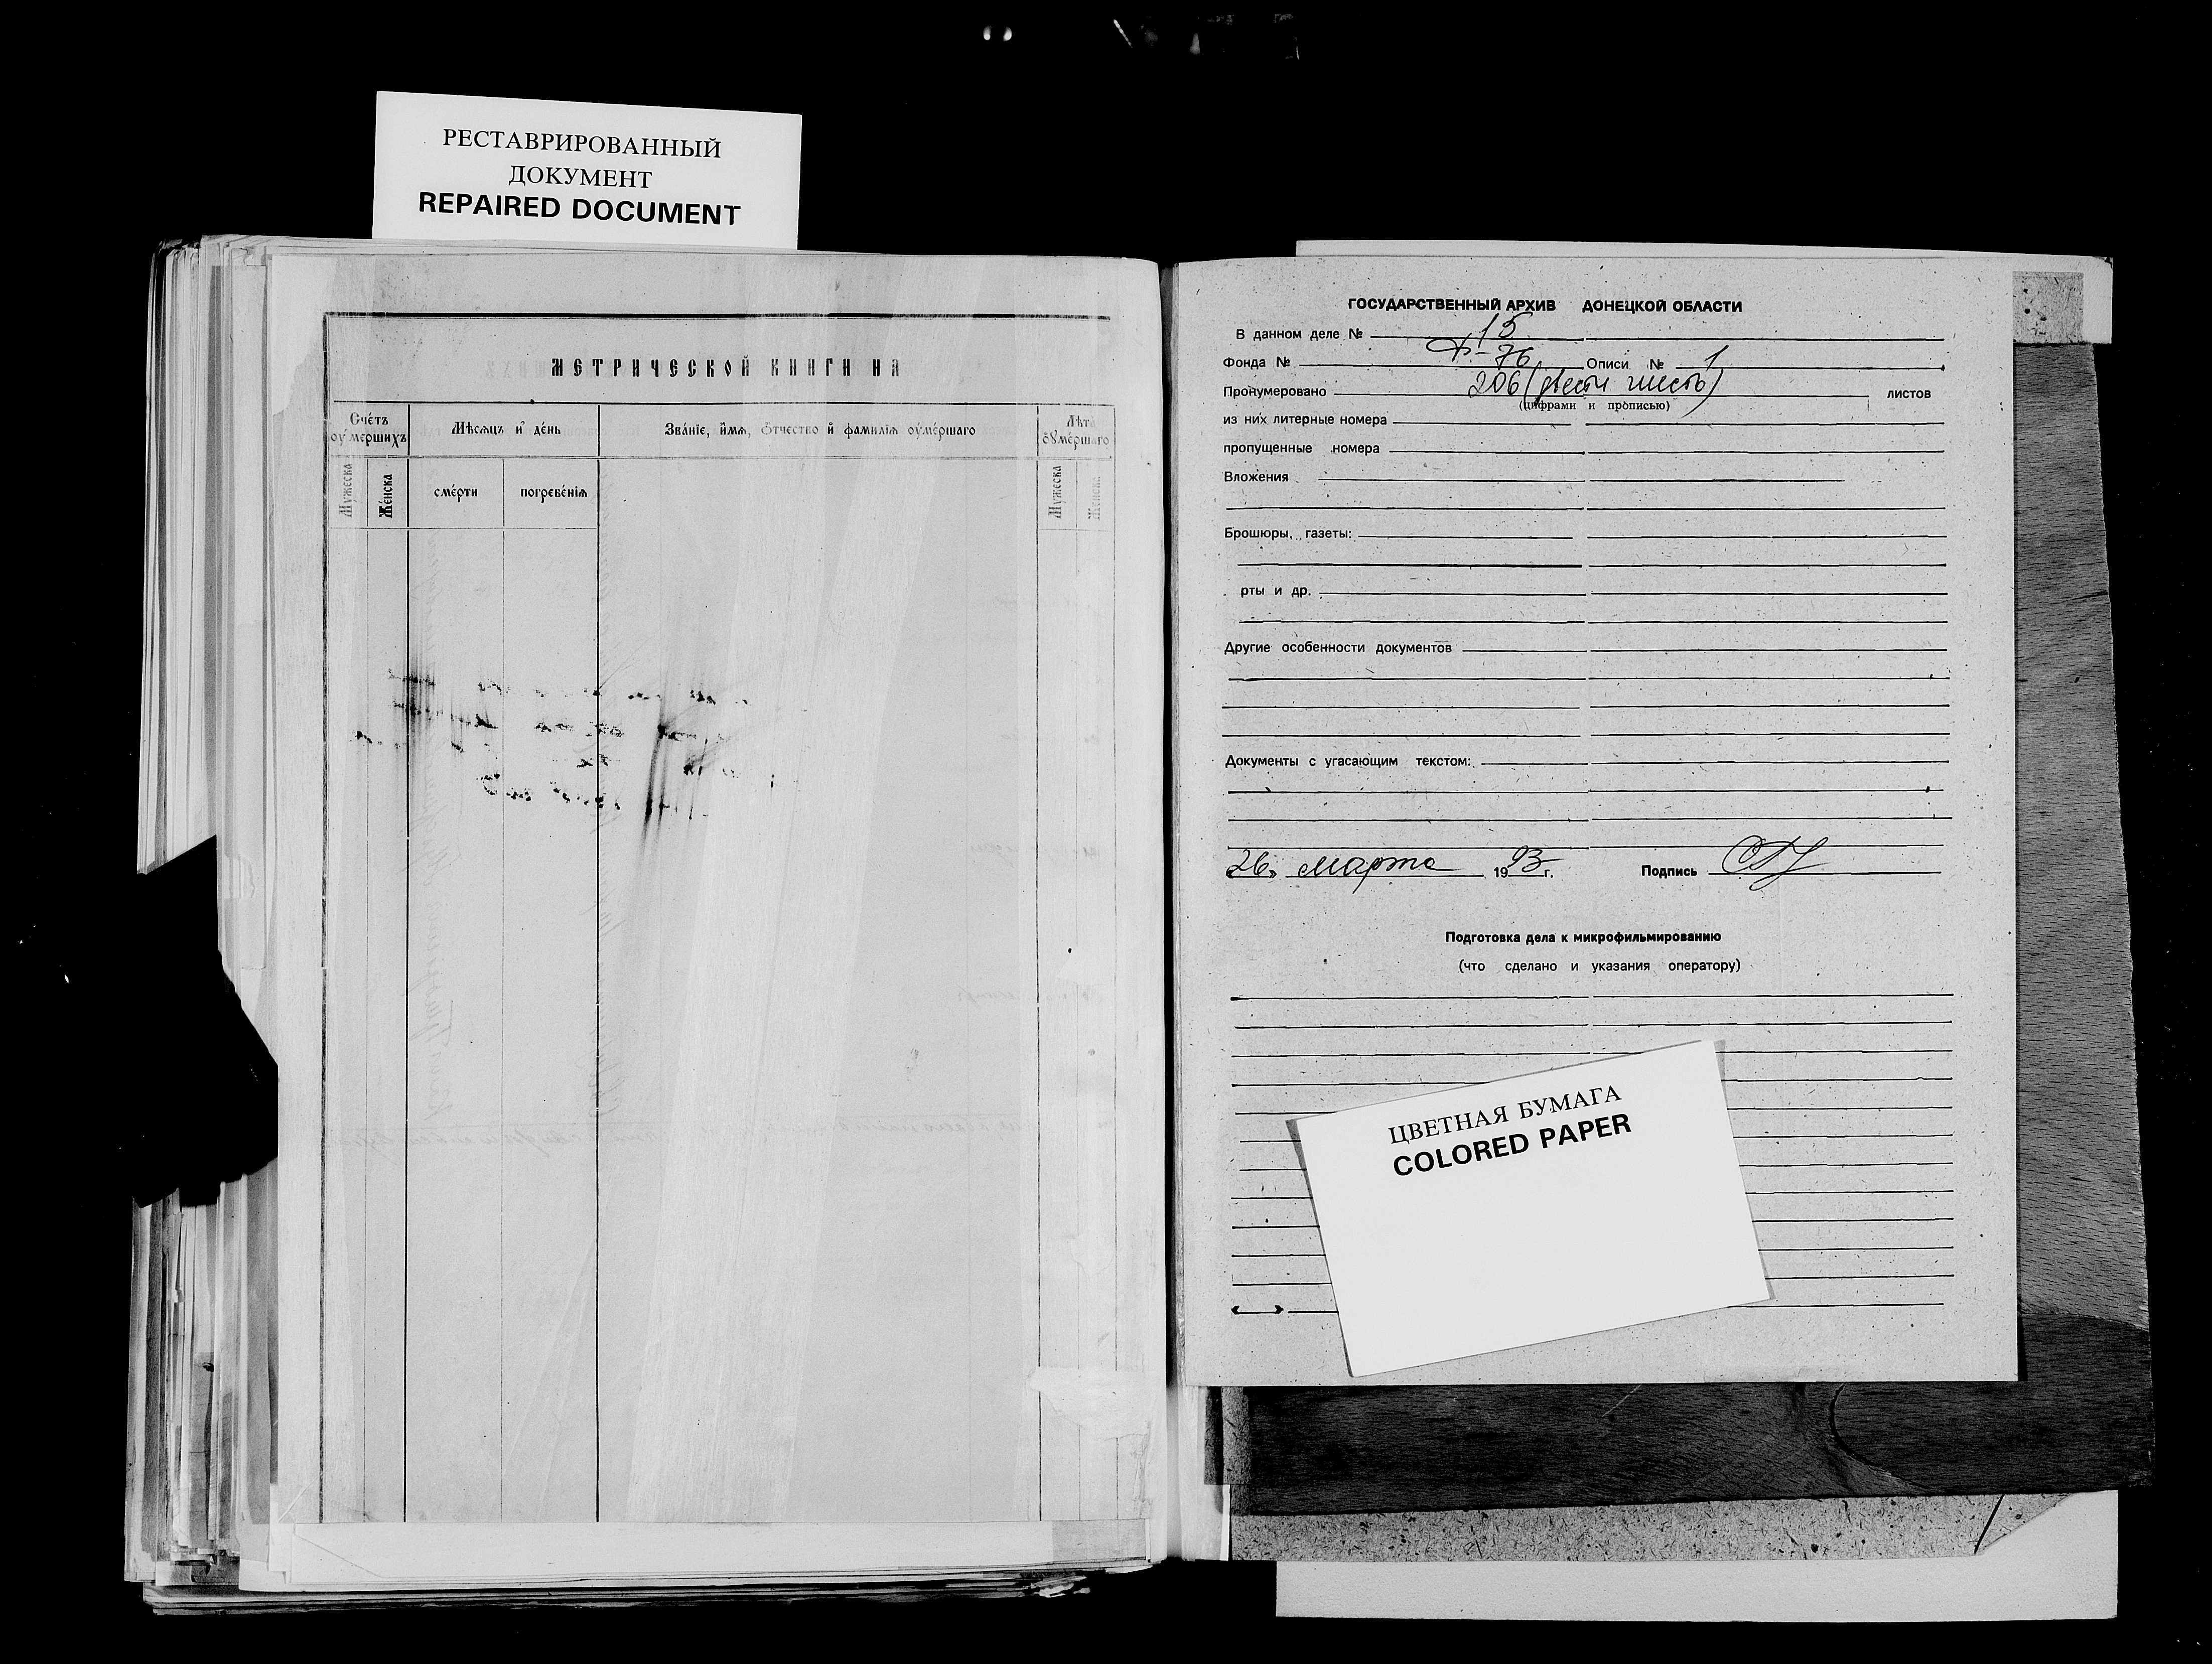 РЕСТАВРИРОВАННЫЙ
ДОКУМЕНТ
REPAIRED DOCUMENT
МЕТРИЧЕСКОЙ КНИГИ НА
Сче́тъ оу҆ме́ршихъ
Мѣсяцъ и҆ де́нь
Зва́нїе, и҆́мѧ, ѻ҆́тчество и҆ фами́лїѧ оу҆ме́ршаго
Лѣта̀ оу҆ме́ршаго
Мꙋ́жеска
Же́нска
сме́рти
погребе́нїѧ
Мꙋ́жеска
Же́нска
ГОСУДАРСТВЕННЫЙ АРХИВ ДОНЕЦКОЙ ОБЛАСТИ
В данном деле № 15
Фонда № Ф-76 Описи № 1
Пронумеровано 206 (двести шесть) листов
(цифрами и прописью)
из них литерные номера
пропущенные номера
Вложения
Брошюры, газеты:
рты и др.
Другие особенности документов
Документы с угасающим текстом:
26 марта 1993 г. Подпись
Подготовка дела к микрофильмированию
(что сделано и указания оператору)
ЦВЕТНАЯ БУМАГА
COLORED PAPER